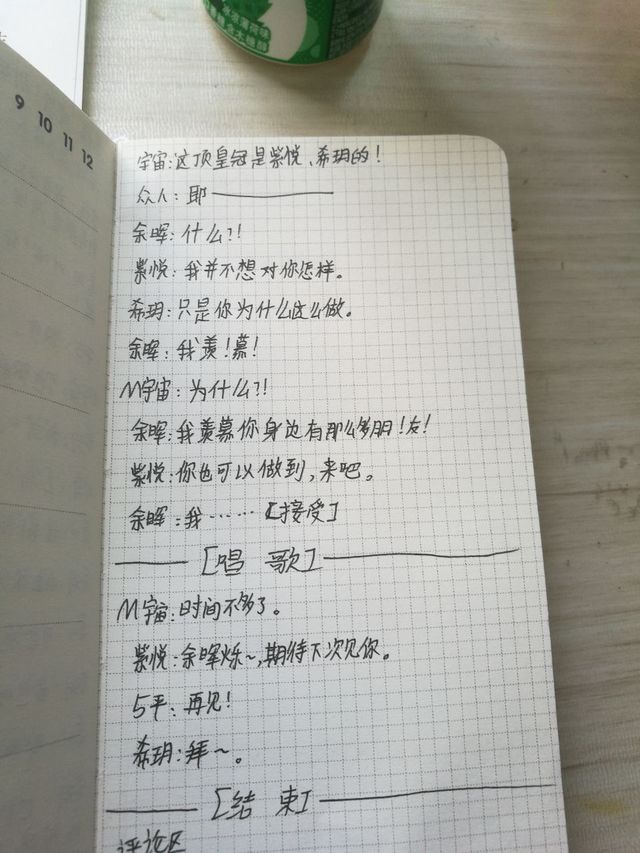 9 10 11 12
宇宙:这顶皇冠是紫悦、希玥的!
众人:耶————
余晖:什么?!
紫悦:我并不想对你怎样。
希玥:只是你为什么这么做。
余晖:我羡!慕!
M宇宙:为什么?!
余晖:我羡慕你身边有那么多朋!友!
紫悦:你也可以做到,来吧。
余晖:我……【接受】
——[唱 歌]————
M宇宙:时间不多了。
紫悦:余晖烁~,期待下次见你。
5平:再见!
希玥:拜~。
——[结 束]————
评论区